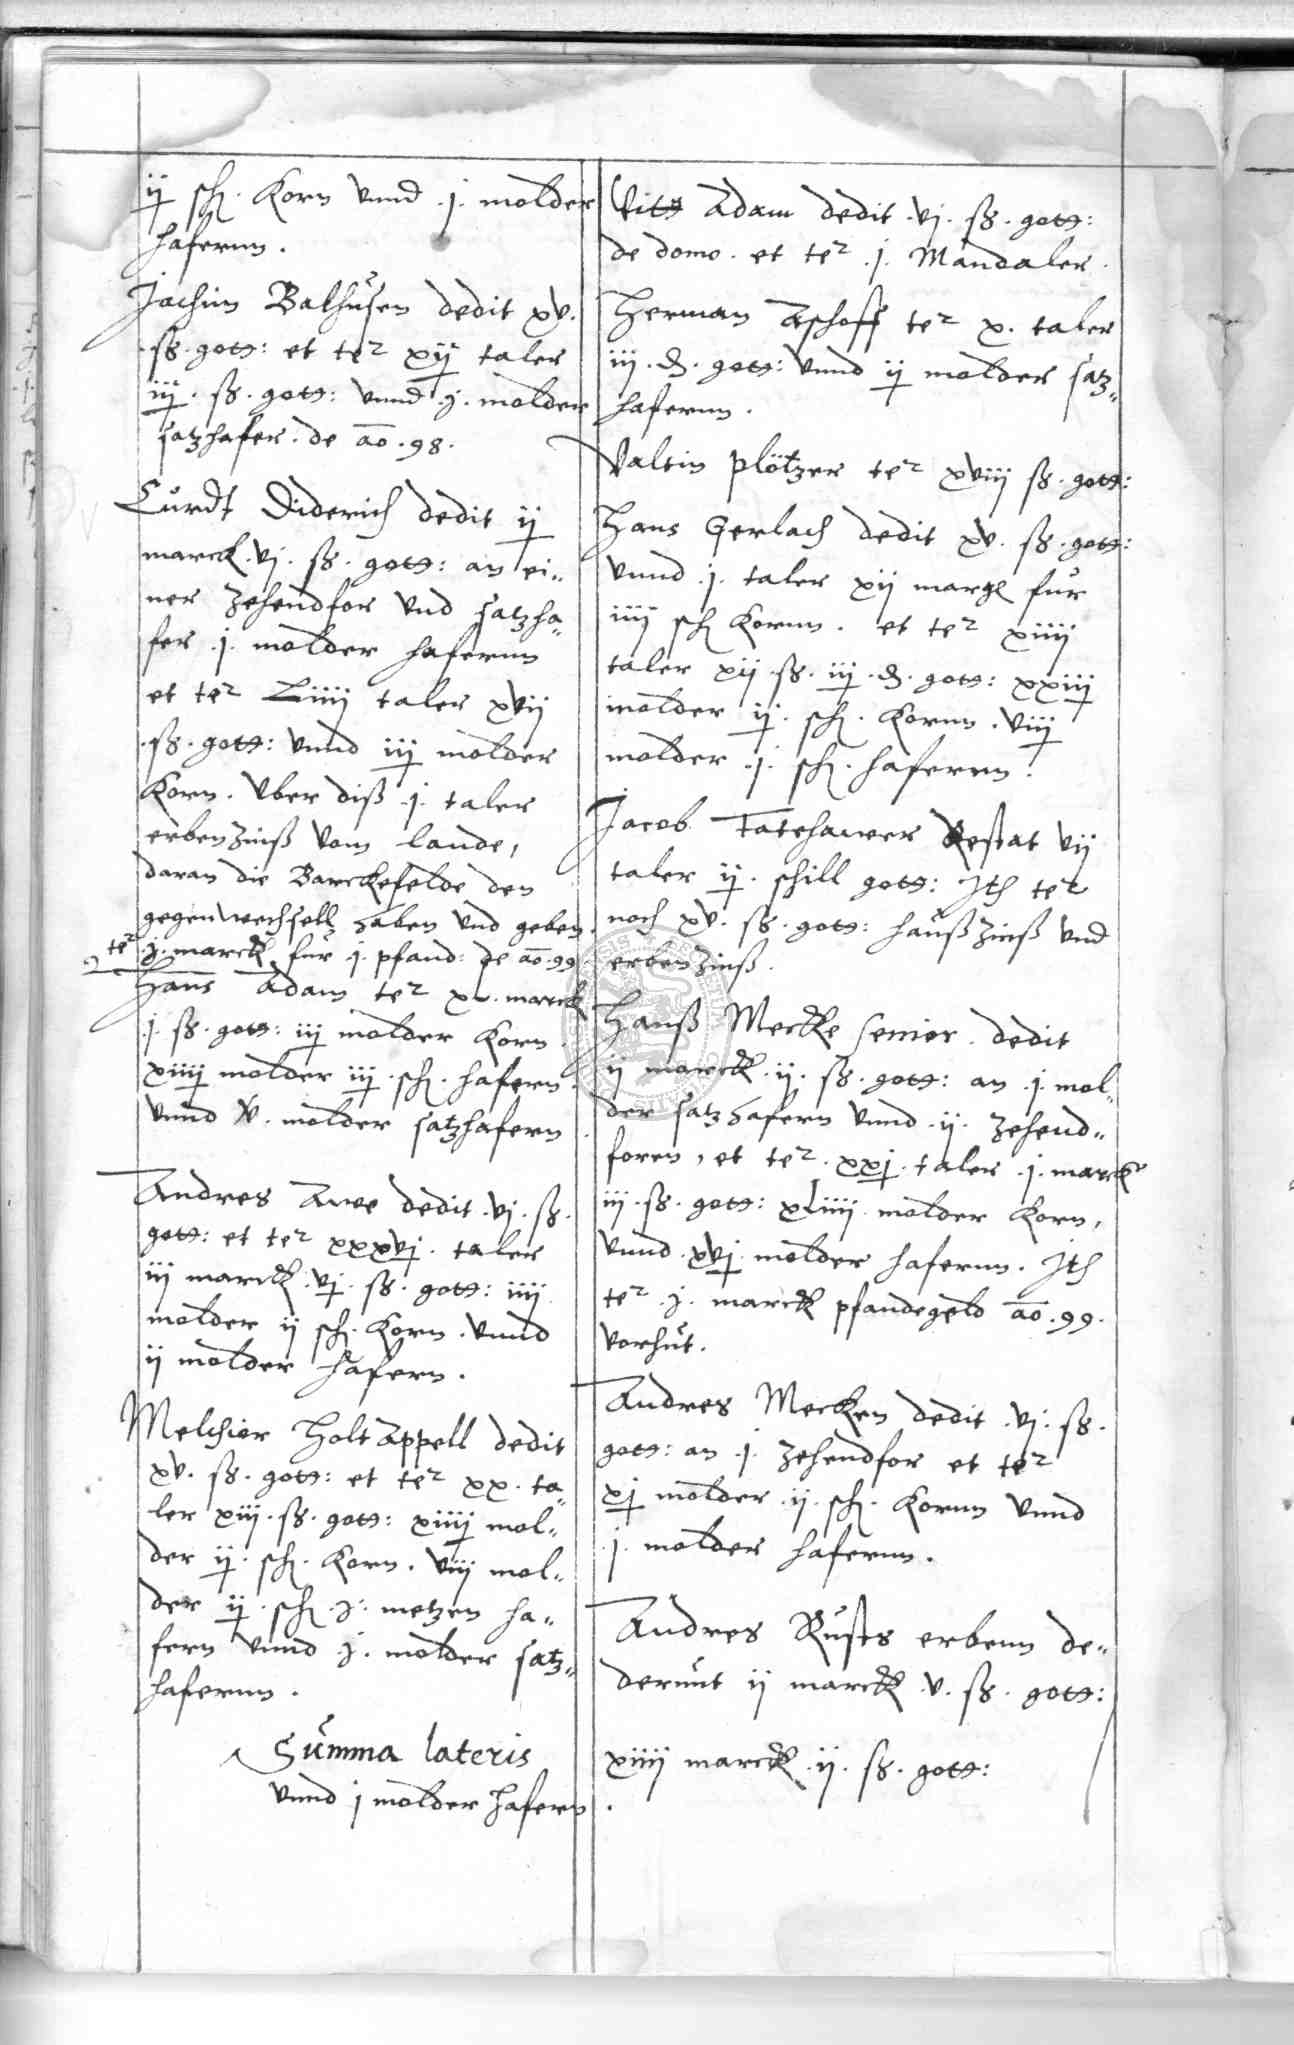 ij sch. Korn vnnd .j. molder
hafernn.
Jachim Balhusen dedit xv.
ß. gots: et ter xij taler
iij. ß. gots: vnnd .j. molder
satzhafer. de ao .98.
Curdt Diderich dedit ij
marck .vj. ß. gots: an ei„
ner zehendfor vnd satzha„
fer .j. molder hafernn
et ter Liiij taler xvij
.ß. gots: vnnd iij molder
Korn. Vber diß .j. taler
erbenzinß vom lande,
daran die Barckefelde den
gegenwechsell haben vnd geben.
ter .j. marck fur .j. pfand: de ao .99
Hans Adam ter xv. marck
.j. ß. gots: iij molder Korn.
xiiij molder iij .sch. hafern.
vnnd V. molder satzhafern.
Andres Awe dedit .vj. ß.
gots: et ter xxxvj. taler
iij marck .vj. ß. gots: iiij
molder ij sch. Korn. vnnd
ij molder hafern.
Melchior Holtappell dedit
xv. ß. gots: et ter xx. ta„
ler xiij. ß. gots: xiiij mol„
der ij. sch. Korn. viij mol„
der ij .sch .j. metzen ha„
fern vnnd .j. molder satz„
hafernn.
Summa lateris
vnnd j molder hafern
Vits Adam dedit .vj. ß. gots:
de domo. et ter .j. Mandaler.
Herman Aschoff ter x. taler
iij. d. gots: vnnd ij molder satz„
hafernn.
Valtin Plötzer ter xviij ß. gots:
Hans Gerlach dedit xv. ß. gots:
vnnd .j. taler xij margk fur
iiij sch Kornn. et ter xiiij
taler xij .ß. iij. d. gots: xxiij
molder ij. sch. Kornn. viij
molder .j. sch. hafernn.
Jacob Tatehawer Restat vij
taler ij. schill gots: Ith ter
noch xv. ß. gots: haußzinß vnd
erbenzinß.
Hanß Mecke senior. dedit
ij marck .ij. ß. gots: an .j. mol„
der satzhafern vnnd .ij. zehend„
foren, et ter .xxj. taler .j. marck
iij. ß. gots: xLiiij molder Korn,
vnnd .xvj. molder hafernn. Ith
ter .j. marck pfandegeld ao .99.
vorhut.
Andres Mecken dedit .vj. ß.
gots: an .j. zehendfor et ter
xj molder .ij. sch. Kornn vnnd
.j. molder hafernn.
Andres Rusts erbenn de„
derunt ij marck .v. ß. gots:
xiiij marck .ij. ß. gots: